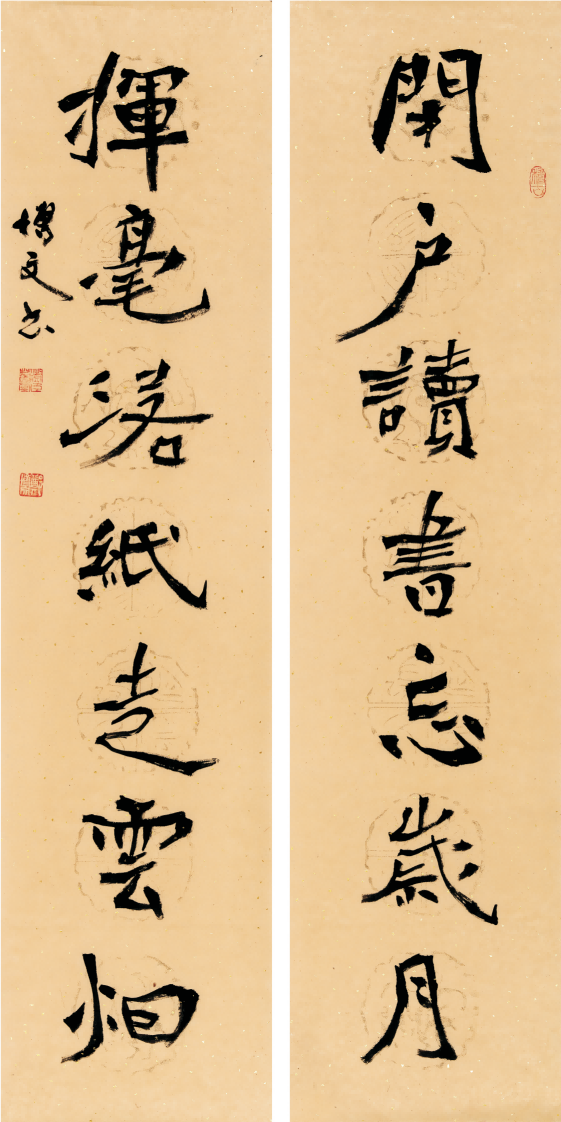 閉户讀書忘歲月
揮毫落紙走雲烟
文书